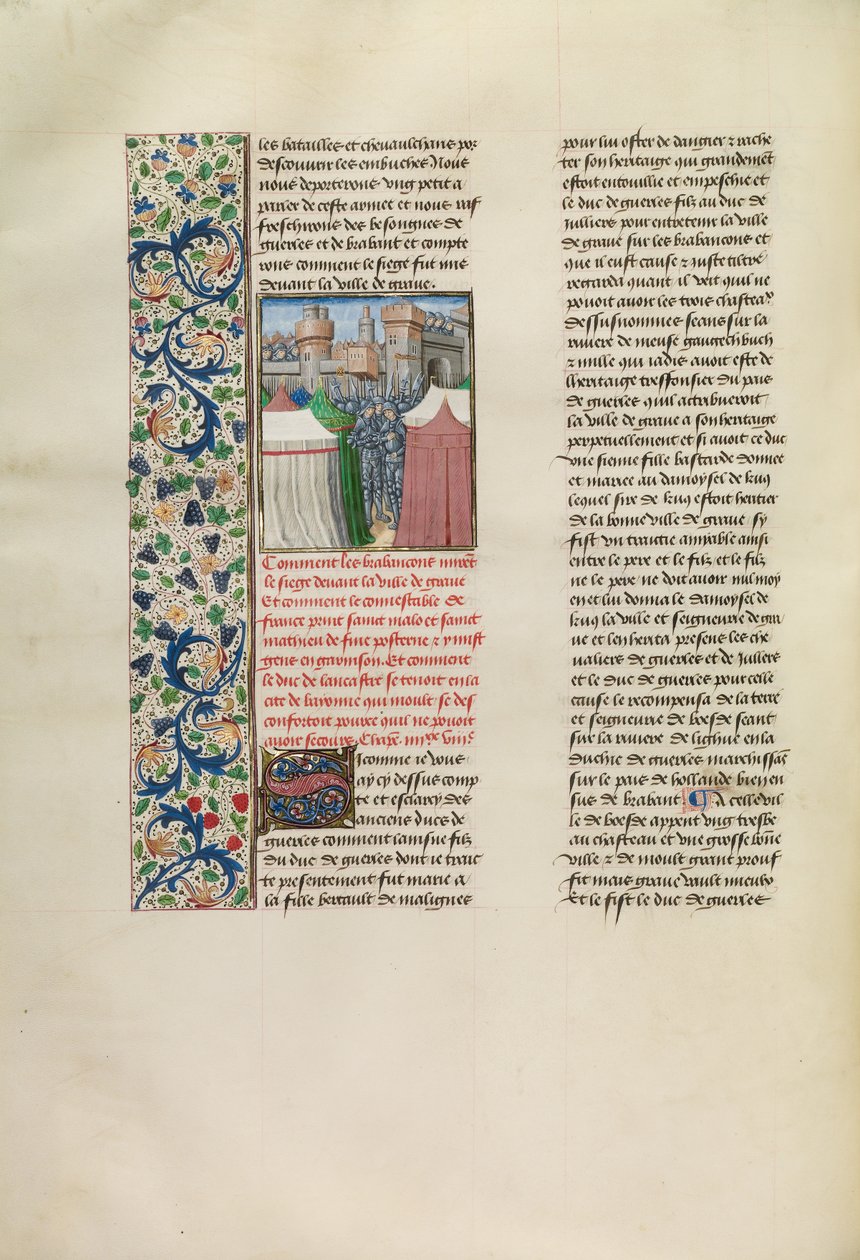 les batailles et chevaulchans por
descouvrir les embuches Nous
nous deporterons ung petit a
parler de ceste armee et nous raf
freschirons des besongnes de
guerles et de brabant et compte
rons comment le siege fut mis
devant la ville de grave.
Comment les brabancons mirẽt
le siege devant la ville de grave
Et comment le connestable de
france print sainct malo et sainct
mathieu de fine posterne ⁊ y mist
gens en garnison. Et comment
le duc de lancastre se tenoit en la
cite de baionne qui moult se des
confortoit pource quil ne pouoit
avoir secours. Chap̃e. iiiixx viiie
Sicomme ie vous
ay cy dessus comp
te et esclarcy des
anciens ducs de
guerles comment lainsne filz
du duc de guerles dont ie traic
te presentement fut marie a
la fille bertault de malignes
pour lui oster de dangier ⁊ rache
ter son heritaige qui grandemẽt
estoit entouillie et empeschie et
le duc de guerles filz au duc de
iulliers pour entretenir la ville
de grave sur les brabancons et
que il eust cause ⁊ iuste tiltre
regarda quant il veit quil ne
pouoit avoir les trois chasteaux
dessusnommes seans sur la
riviere de meuse gaugechbuch
⁊ mille qui iadis avoit este de
lheritaige tresfonsier du pais
de guerles quil attribueroit
la ville de grave a son heritaige
perpetuellement et si avoit ce duc
une sienne fille bastarde donnee
et mariee au damoysel de kuq
lequel sire de kuq estoit heritier
de la bonne ville de grave sy
fist un traictie amyable ainsi
entre le pere et le filz et le filz
ne le pere ne doit avoir nul moy
en et lui donna le damoysel de
kuq la ville et seigneurie de gra
ve et len herita presens les che
valiers de guerles et de iullers
et le duc de guerles pour celle
cause le recompensa de la terre
et seigneurie de brede seant
sur la riviere de lighue en la
duchie de guerles marchissãt
sur le pais de hollande bien en
sus de brabant ¶ A celle vil
le de brede appent ung tresbe
au chasteau et une grosse bõne
ville ⁊ de moult grant prouf
fit mais grave vault mieulx
Et le fist le duc de guerles